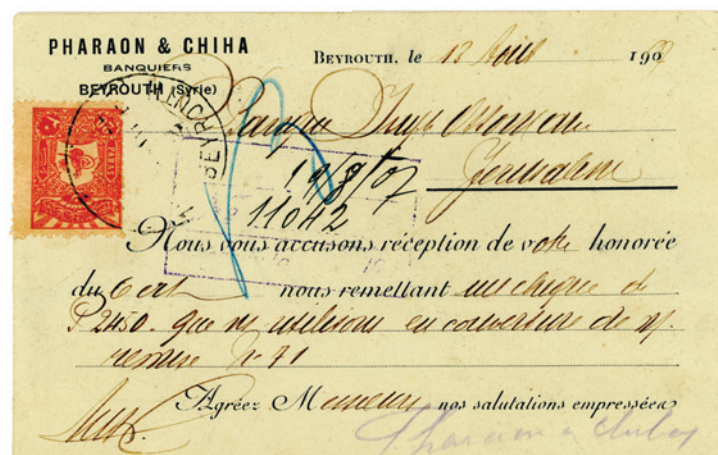 PHARAON & CHIHA
BANQUIERS
BEYROUTH (Syrie)
BEYROUTH, le 13 Août 1907
Jerusalem
19/8/07
11042
Nous vous accusons réception de votre honorée
du 6 crt nous remettant un chèque de
P 2450. que ns utilisons en couverture de n/.
remise No 71
Agréez Messieurs nos salutations empressées
Pharaon & Chiha